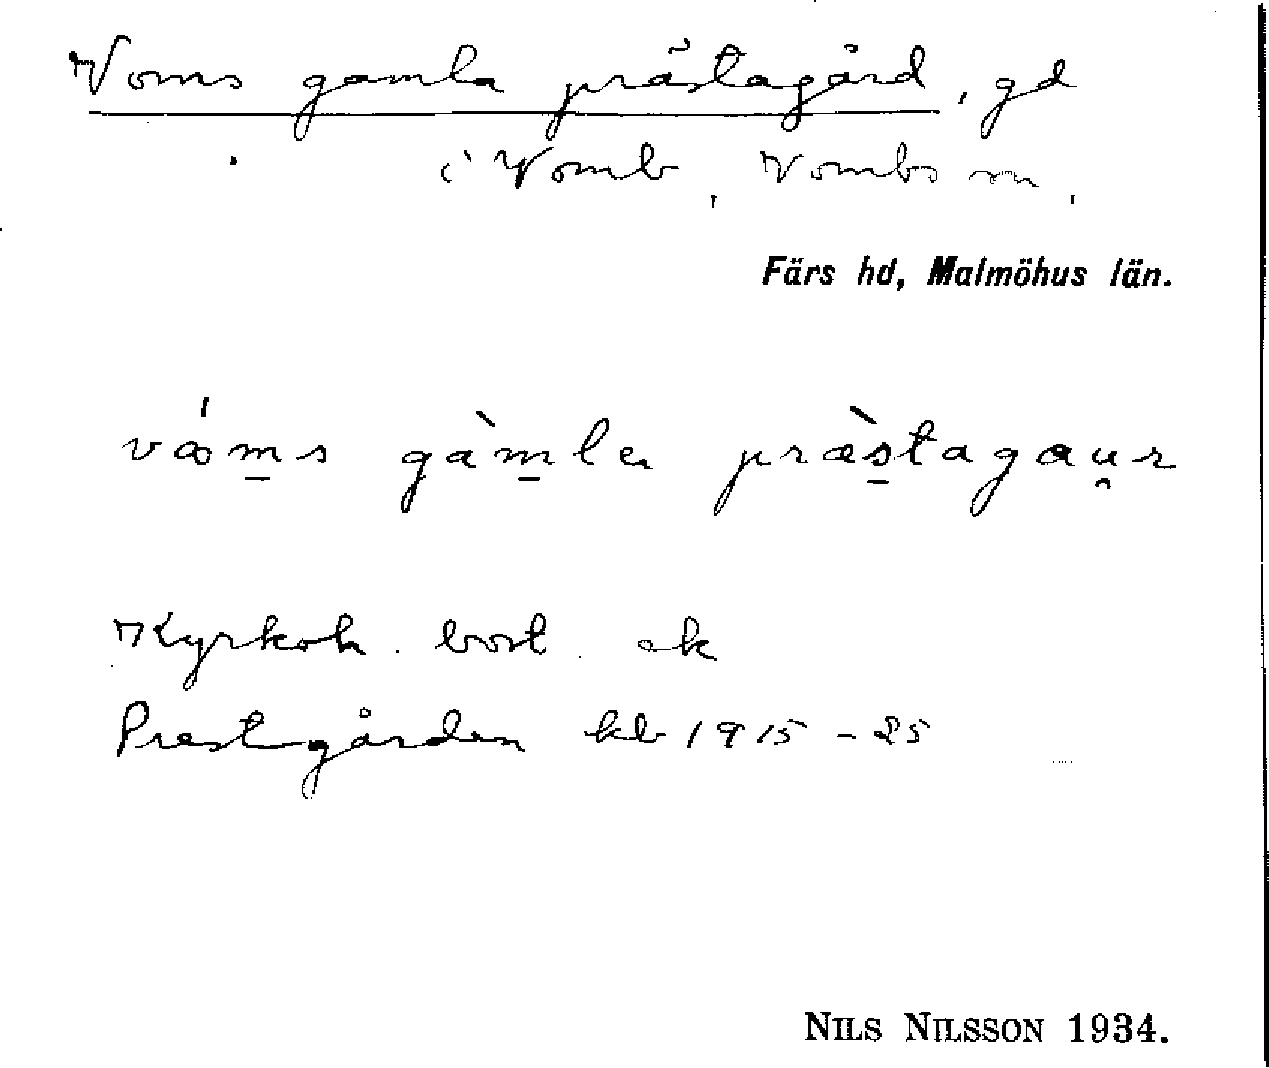 Voms gamla prästagård, gd
i Vomb, Vombs sn,
Färs hd, Malmöhus län.
våm̲s gàm̲la præ̀s̲tagau̯r
Kyrkoh. bost. ek
Prestgården kb 1915-25
NILS NILSSON 1934.